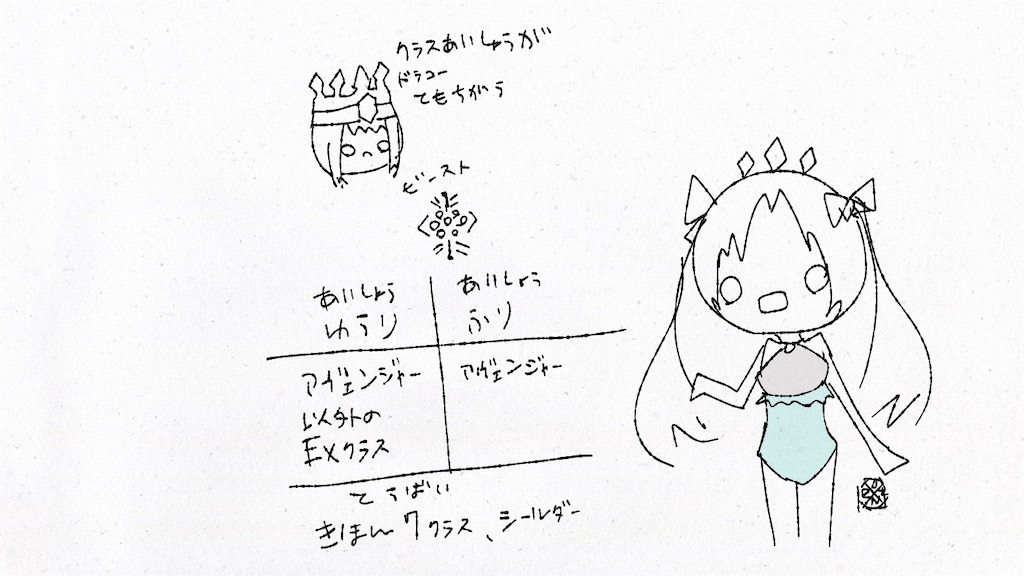 クラスあいしょうが
ドラコー
てもちがう
ビースト
あいしょう
ゆうり
あいしょう
ふり
アヴェンジャー
以外の
EXクラス
アヴェンジャー
とうばい
きほん7クラス、シールダー